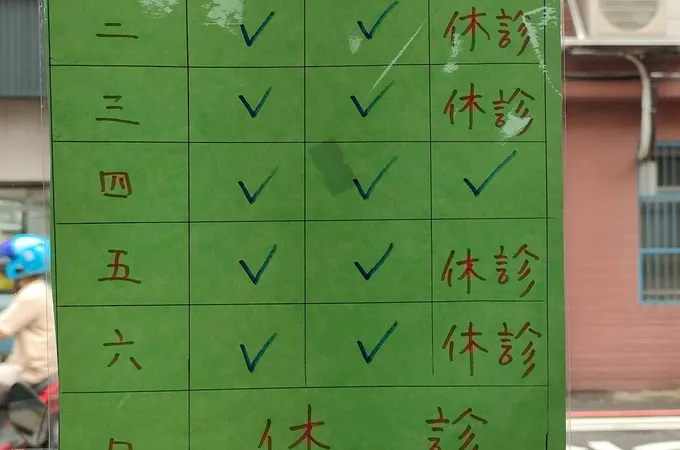 二 ✓ ✓ 休診
三 ✓ ✓ 休診
四 ✓ ✓ ✓
五 ✓ ✓ 休診
六 ✓ ✓ 休診
日 休診